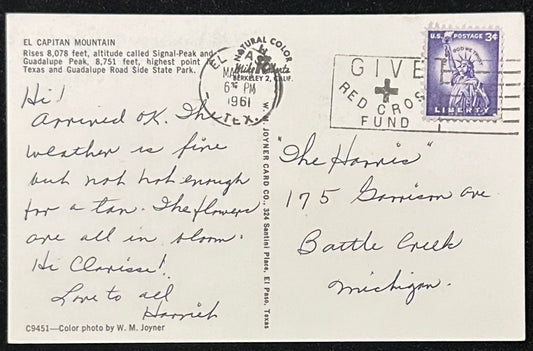 EL CAPITAN MOUNTAIN
Rises 8,078 feet, altitude called Signal-Peak and
Guadalupe Peak, 8,751 feet, highest point in
Texas and Guadalupe Road Side State Park.
Hi!
Arrived OK. The
weather is fine
but not hot enough
for a tan. The flowers
are all in bloom.
Hi Clarisse!
Love to all
Harriet
C9451—Color photo by W. M. Joyner
NATURAL COLOR
BERKELEY 2, CALIF.
W. M. JOYNER CARD CO., 324 Santini Place, El Paso, Texas
EL PASO
MAR
6 PM
1961
TEX.
GIVE
RED CROSS
FUND
U.S. POSTAGE 3¢
IN GOD WE TRUST
LIBERTY
"The Harris"
175 Garrison Ave
Battle Creek
Michigan.